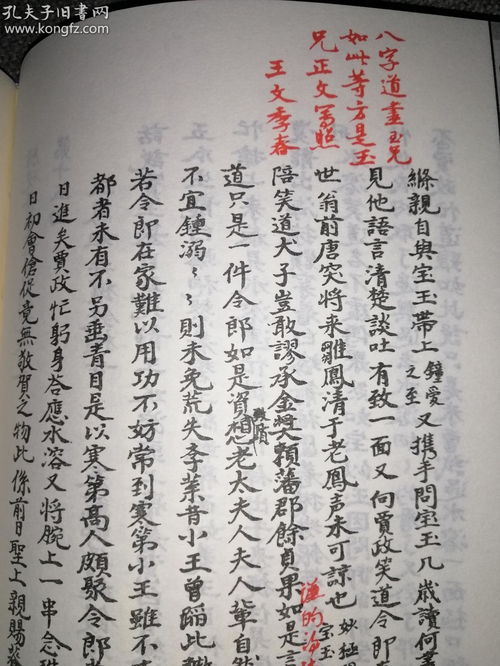 孔夫子旧书网
www.kongfz.com
八字道盡玉兄
如此等方是玉
兄正文寫照
王文季春
縧親自與宝玉帶上鐘愛之至又携手問宝玉几歲讀何
見他語言清楚談吐有致一面又向賈政笑道令郎
世翁前唐突將来雛鳳清于老鳳声未可諒也妙極
陪笑道犬子豈敢謬承金奨頼藩郡餘貞果如是言
謙的
道只是一件令郎如是資想老太夫人夫人輩自然
不宜鍾溺〻〻則未免荒失李業昔小王曽蹈此
若令郎在家難以用功不妨常到寒第小王雖不
都者未有不另垂青目是以寒第高人頗聚令郎
日進矣賈政忙躬身答應水溶又將腕上一串念珠
日初會傖促竟無敬賀之物此係前日聖上親賜